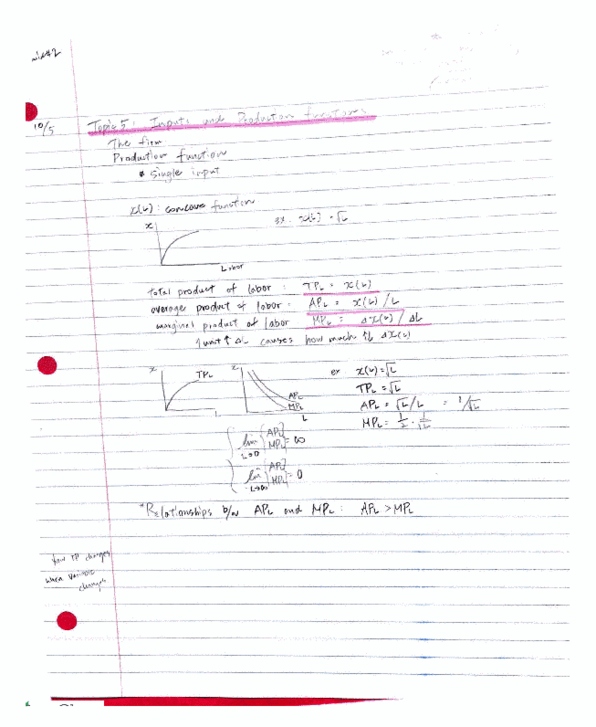 mid#2
10/5
Topic 5: Inputs and Production functions
The firm
Production function
• single input
x(L): concave function
ex. x(L) = √L
x
Labor
total product of labor : TPL = x(L)
average product of labor : APL = x(L) / L
marginal product of labor MPL = Δx(L) / ΔL
1 unit ↑ ΔL causes how much ↑ Δx(L)
x
TPL
L
x
APL
MPL
L
ex x(L) = √L
TPL = √L
APL = √L / L = 1/√L
MPL = 1/2 · 1/√L
lim L→0 { APL MPL } = ∞
lim L→∞ { APL MPL } = 0
*Relationships b/w APL and MPL : APL > MPL
how TP changes
when variable
changes